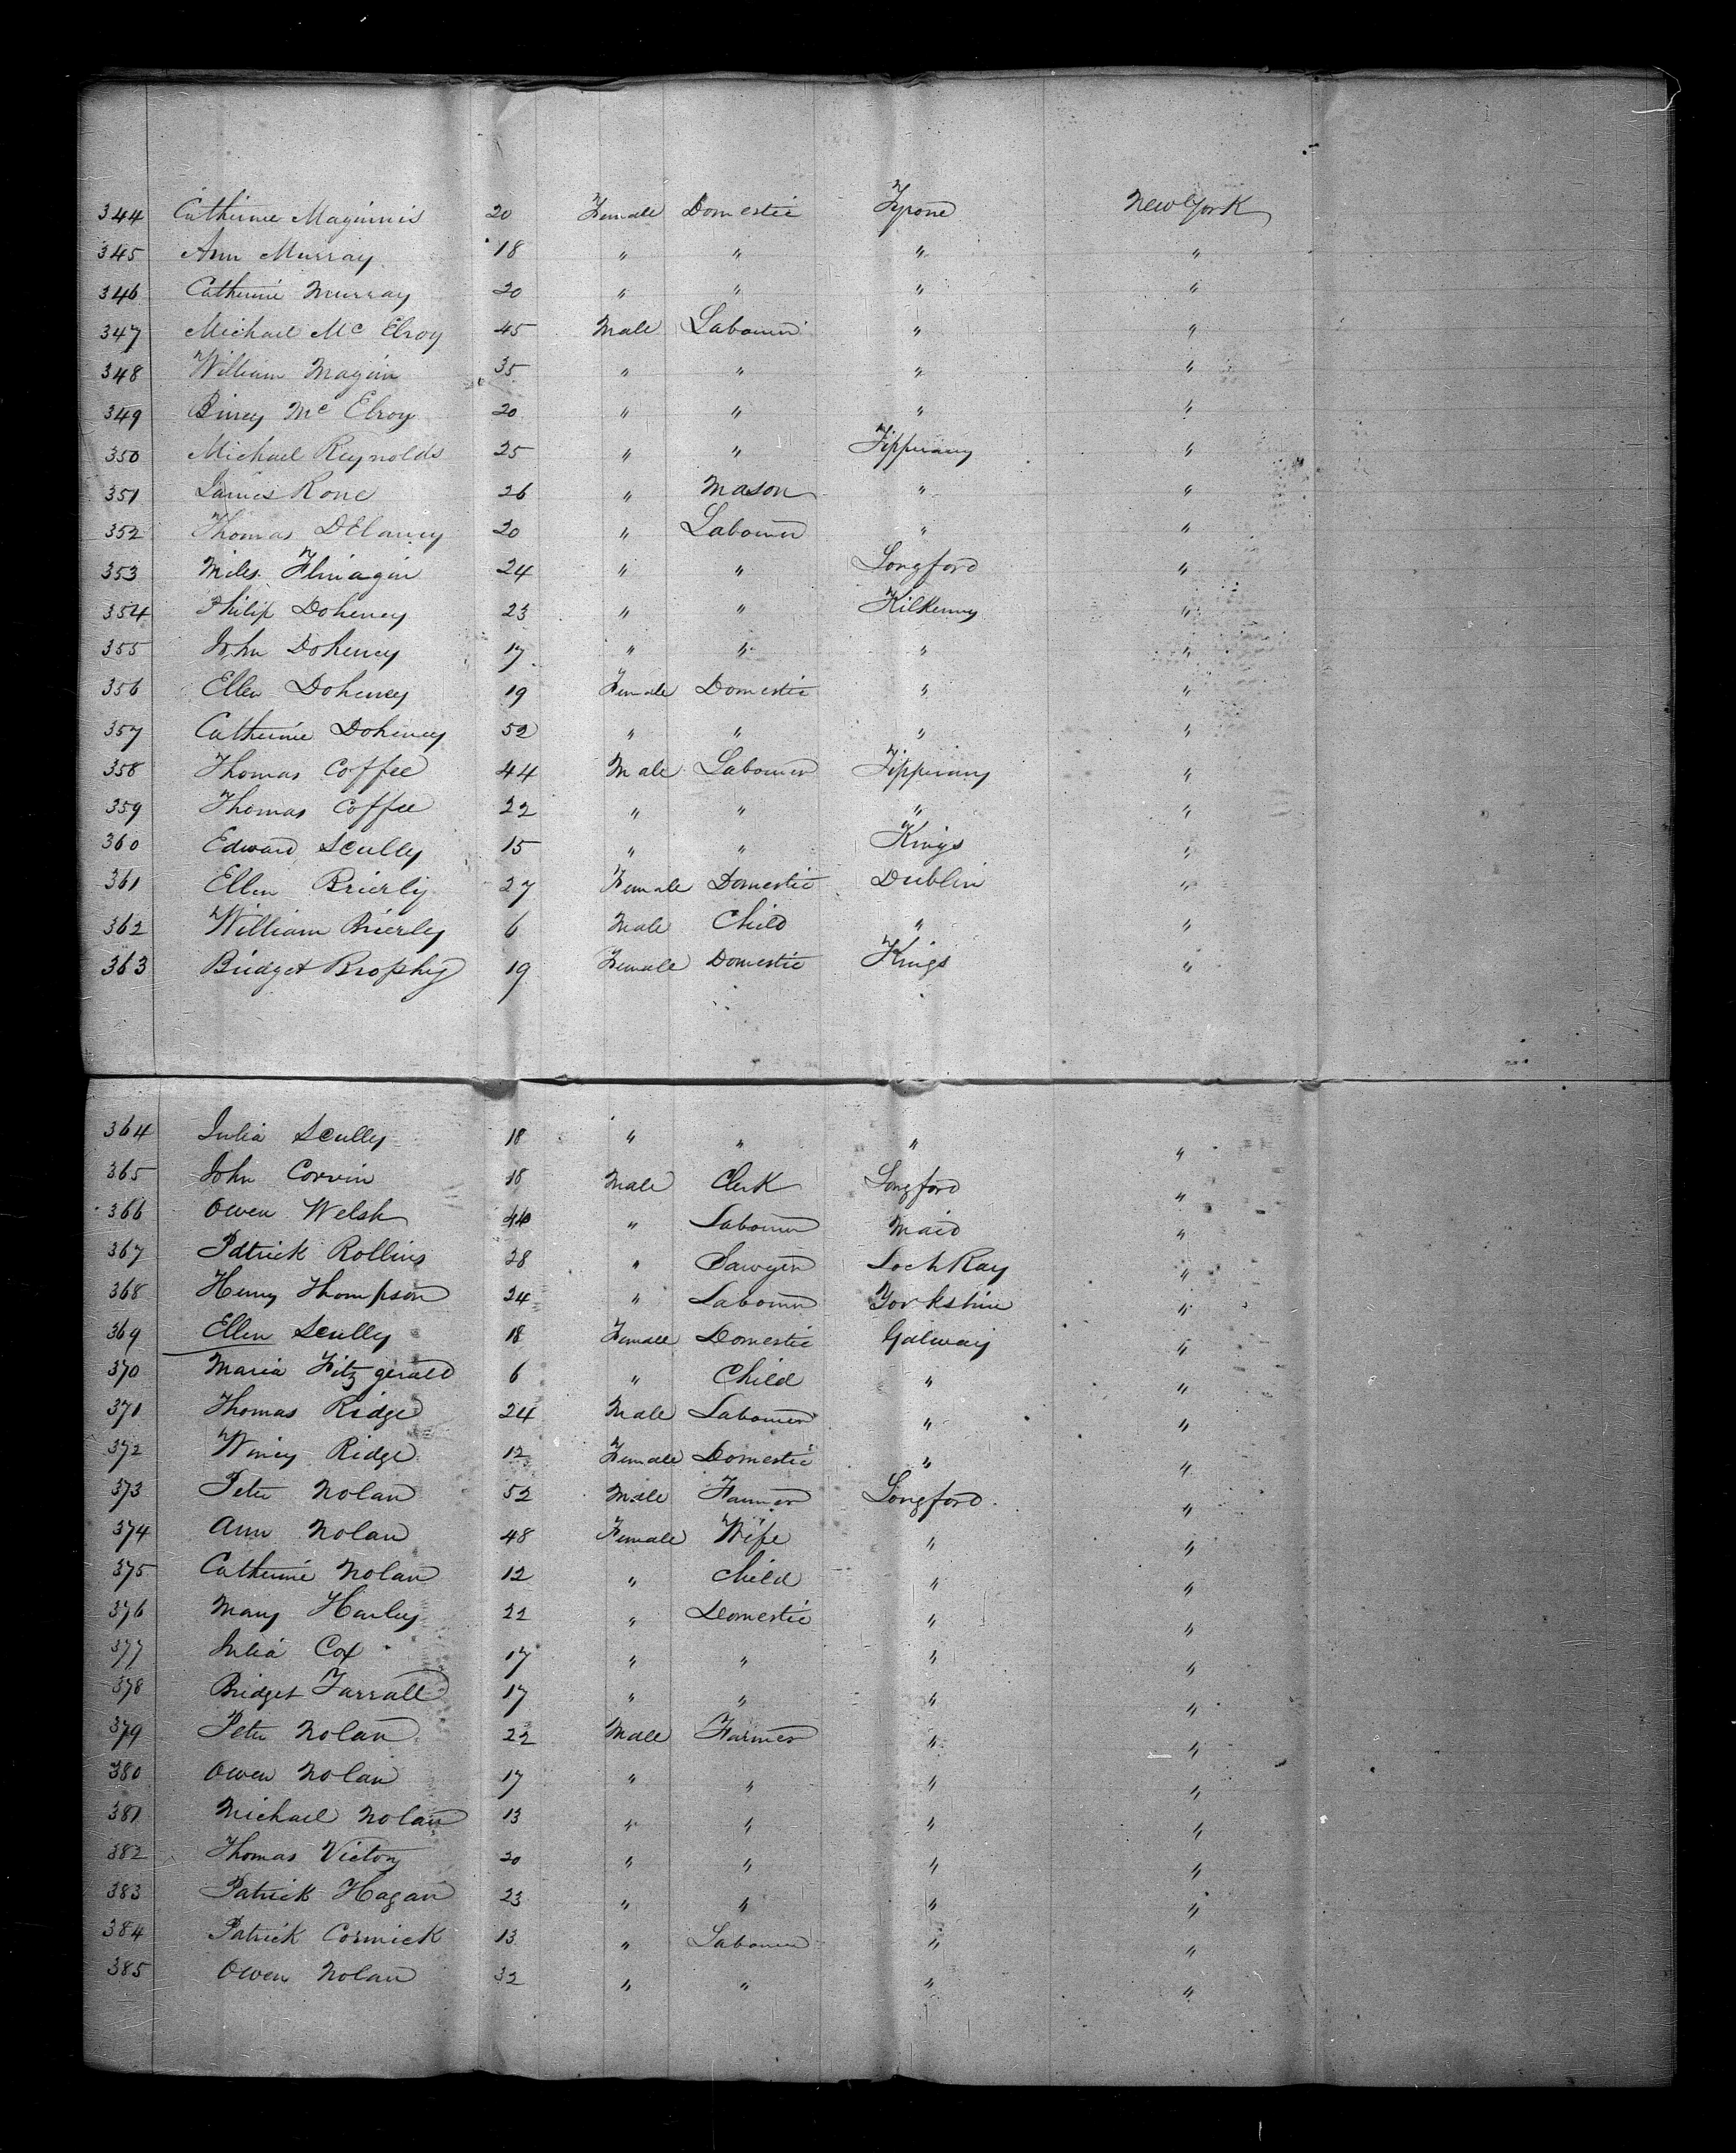 344 Catherine Maginnis 20 Female Domestic Tyrone New York
345 Ann Murray 18 " " " "
346 Catherine Murray 20 " " " "
347 Michael Mc Elroy 45 Male Labourer " "
348 William Magin 35 " " " "
349 Mc Elroy 20 " " " "
350 Michael Reynolds 25 " " Tipperary "
351 James Rone 26 " Mason " "
352 Thomas DElaney 20 " Labourer " "
353 Miles Flinagin 24 " " Longford "
354 Philip Doheney 23 " " Kilkenny "
355 John Doheney 17 " " " "
356 Ellen Doheney 19 Female Domestic " "
357 Catherine Doheney 52 " " " "
358 Thomas Coffee 44 Male Labourer Tipperary "
359 Thomas Coffee 22 " " " "
360 Edward Scully 15 " " Kings "
361 Ellen Brierly 27 Female Domestic Dublin "
362 William Brierley 6 Male Child " "
363 Bridget Brophy 19 Female Domestic Kings "
364 Julia Scully 18 " " " "
365 John Corvin 18 Male Clerk Longford "
366 Owen Welsh " Labourer Maio "
367 Patrick Rollins 28 " Sawyer LochRay "
368 Henry Thompson 24 " Labourer Yorkshire "
369 Ellen Scully 18 Female Domestic Galway "
370 Maria Fitzgerald 6 " Child " "
371 Thomas Ridge 24 Male Labourer " "
372 Winey Ridge 12 Female Domestic " "
373 Peter Nolan 52 Male Farmer Longford "
374 Ann Nolan 48 Female Wife " "
375 Catherine Nolan 12 " Child " "
376 Mary Harley 22 " Domestic " "
377 Julia Cox 17 " " " "
378 Bridget Farrall 17 " " " "
379 Peter Nolan 22 Male Farmer " "
380 Owen Nolan 17 " " " "
381 Michael Nolan 13 " " " "
382 Thomas Victory 20 " " " "
383 Patrick Hagan 23 " " " "
384 Patrick Cormick 13 " Labourer " "
385 Owen Nolan 32 " " " "